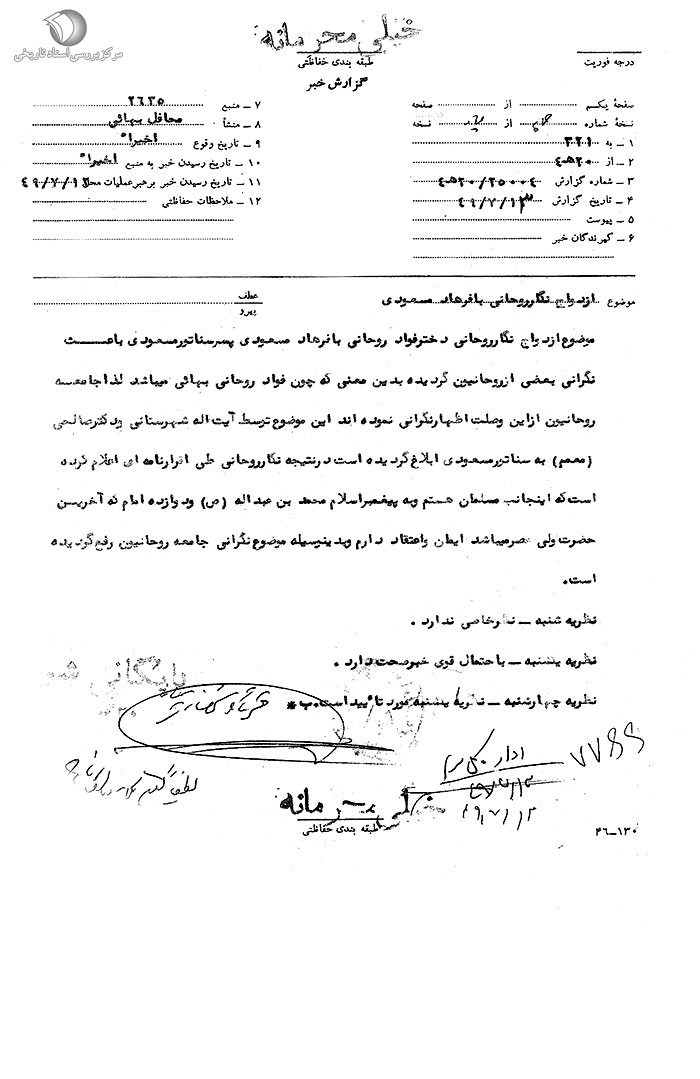 مرکز بررسی اسناد تاریخی
خیلی محرمانه
طبقه بندی حفاظتی
درجه فوریت
گزارش خبر
صفحهٔ یکم از صفحه
نسخهٔ شماره از نسخه
۱ ــ به ۳۲۱
۲ ــ از ۲۰هـ۴
۳ ــ شماره گزارش ۲۰/۲۵۰۰۴هـ۴
۴ ــ تاریخ گزارش ۴۹/۷/۱۳
۵ ــ پیوست
۶ ــ گیرندگان خبر
۷ ــ منبع ۲۶۲۵
۸ ــ منشأ محافل بهائی
۹ ــ تاریخ وقوع اخیراً
۱۰ ــ تاریخ رسیدن خبر به منبع اخیراً
۱۱ ــ تاریخ رسیدن خبر برهبرعملیات محل ۴۹/۷/۱۲
۱۲ ــ ملاحظات حفاظتی
موضوع ازدواج نگارروحانی بافرهاد مسعودی
عطف
پیرو
موضوع ازدواج نگارروحانی دخترفواد روحانی بافرهاد مسعودی پسرسناتورمسعودی باعث
نگرانی بعضی ازروحانیون گردیده بدین معنی که چون فواد روحانی بهائی میباشد لذاجامعه
روحانیون ازاین وصلت اظهارنگرانی نموده اند این موضوع توسط آیت اله شهرستانی ودکترصالحی
(معمم) به سناتورمسعودی ابلاغ گردیده است درنتیجه نگارروحانی طی اقرارنامه ای اعلام کرده
است که اینجانب مسلمان هستم وبه پیغمبراسلام محمد بن عبداله (ص) ودوازده امام که آخرین
حضرت ولی عصرمیباشد ایمان واعتقاد دارم وبدینوسیله موضوع نگرانی جامعه روحانیون رفع گردیده
است.
نظریه شنبه ــ نظرخاصی ندارد .
نظریه یکشنبه ــ باحتمال قوی خبرصحت دارد .
نظریه چهارشنبه ــ نظریه یکشنبه مورد تائید است.ب*
بایگانی ش
۷۷۶۶
خیلی محرمانه
طبقه بندی حفاظتی
۴۶ــ۱۳۰